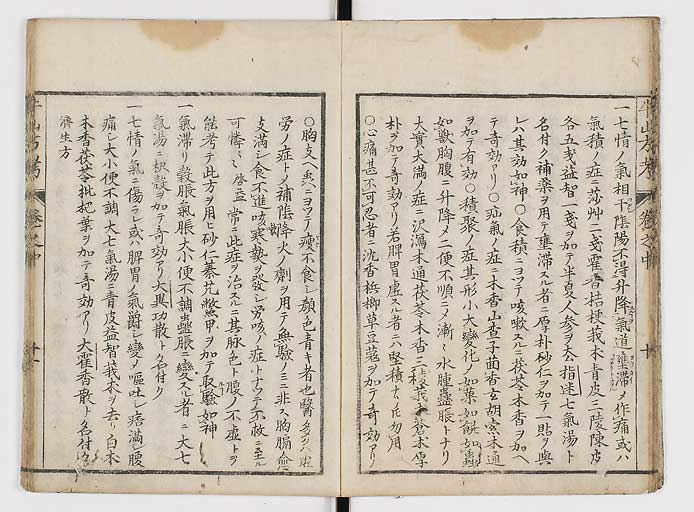 一七情ノ氣相干陰陽不得升降氣道壅滯メ作痛或ハ
氣積ノ症ニ莎艸二戔霍香桔梗莪朮青皮三陵陳皮
各五戔益智一戔ヲ加テ半夏ノ人参ヲ去指迷七氣湯ト
名付ク補藥ヲ用テ壅滯スル者ニ厚朴砂仁ヲ加テ一貼ヲ與
レハ其効如神〇食積ニヨツテ咳嗽スルニ茯苓木香ヲ加ヘ
テ奇効アリ〇疝氣ノ症ニ木香山査子茴香玄胡索木通
ヲ加テ有効〇積聚ノ症其形小大變化ノ如葉如餅如蟲
如獣胸腹ニ升降メ二便不順ニメ漸々水腫蠱脹トナリ
大實大満ノ症ニ沢瀉木通茯苓木香三棱莪朮蒼朮厚
朴ヲ加テ奇効アリ若脾胃虚スル者ニハ堅積ナリ𪜈勿用
〇心痛甚不可忍者ニ沈香梹榔草豆蔲ヲ加テ奇効アリ
〇胸支ヘ或ニヨツテ痩不食シ顔ノ色青キ者也醫多クハ虚
労ノ症トメ補陰降火ノ劑ヲ用テ無驗ノミニ非ス胸膈愈
支満シ食不進咳寒熱ヲ發シ労咳ノ症トナツテ不救ニ至ル
可憐〻啓益常ニ此症ヲ治スルニ其脉色ト腹ノ不虚トヲ
能考テ此方ヲ用ヒ砂仁秦艽鱉甲ヲ加テ取驗如神
一氣滯リ穀脹氣脹大小便不調蠱脹ニ變スル者ニ大七
氣湯ニ枳殻ヲ加テ奇効アリ大異功散ト名付ク
一七情ノ氣ニ傷ラレ或ハ脾胃ノ氣欝シ變メ嘔吐シ痞満シ腹
痛シ大小便不調大七氣湯ニ青皮益智莪朮ヲ去リ白朮
木香茯苓枇杷葉ヲ加テ奇効アリ大霍香散ト名付ク
濟生方
牛山方考
巻之中